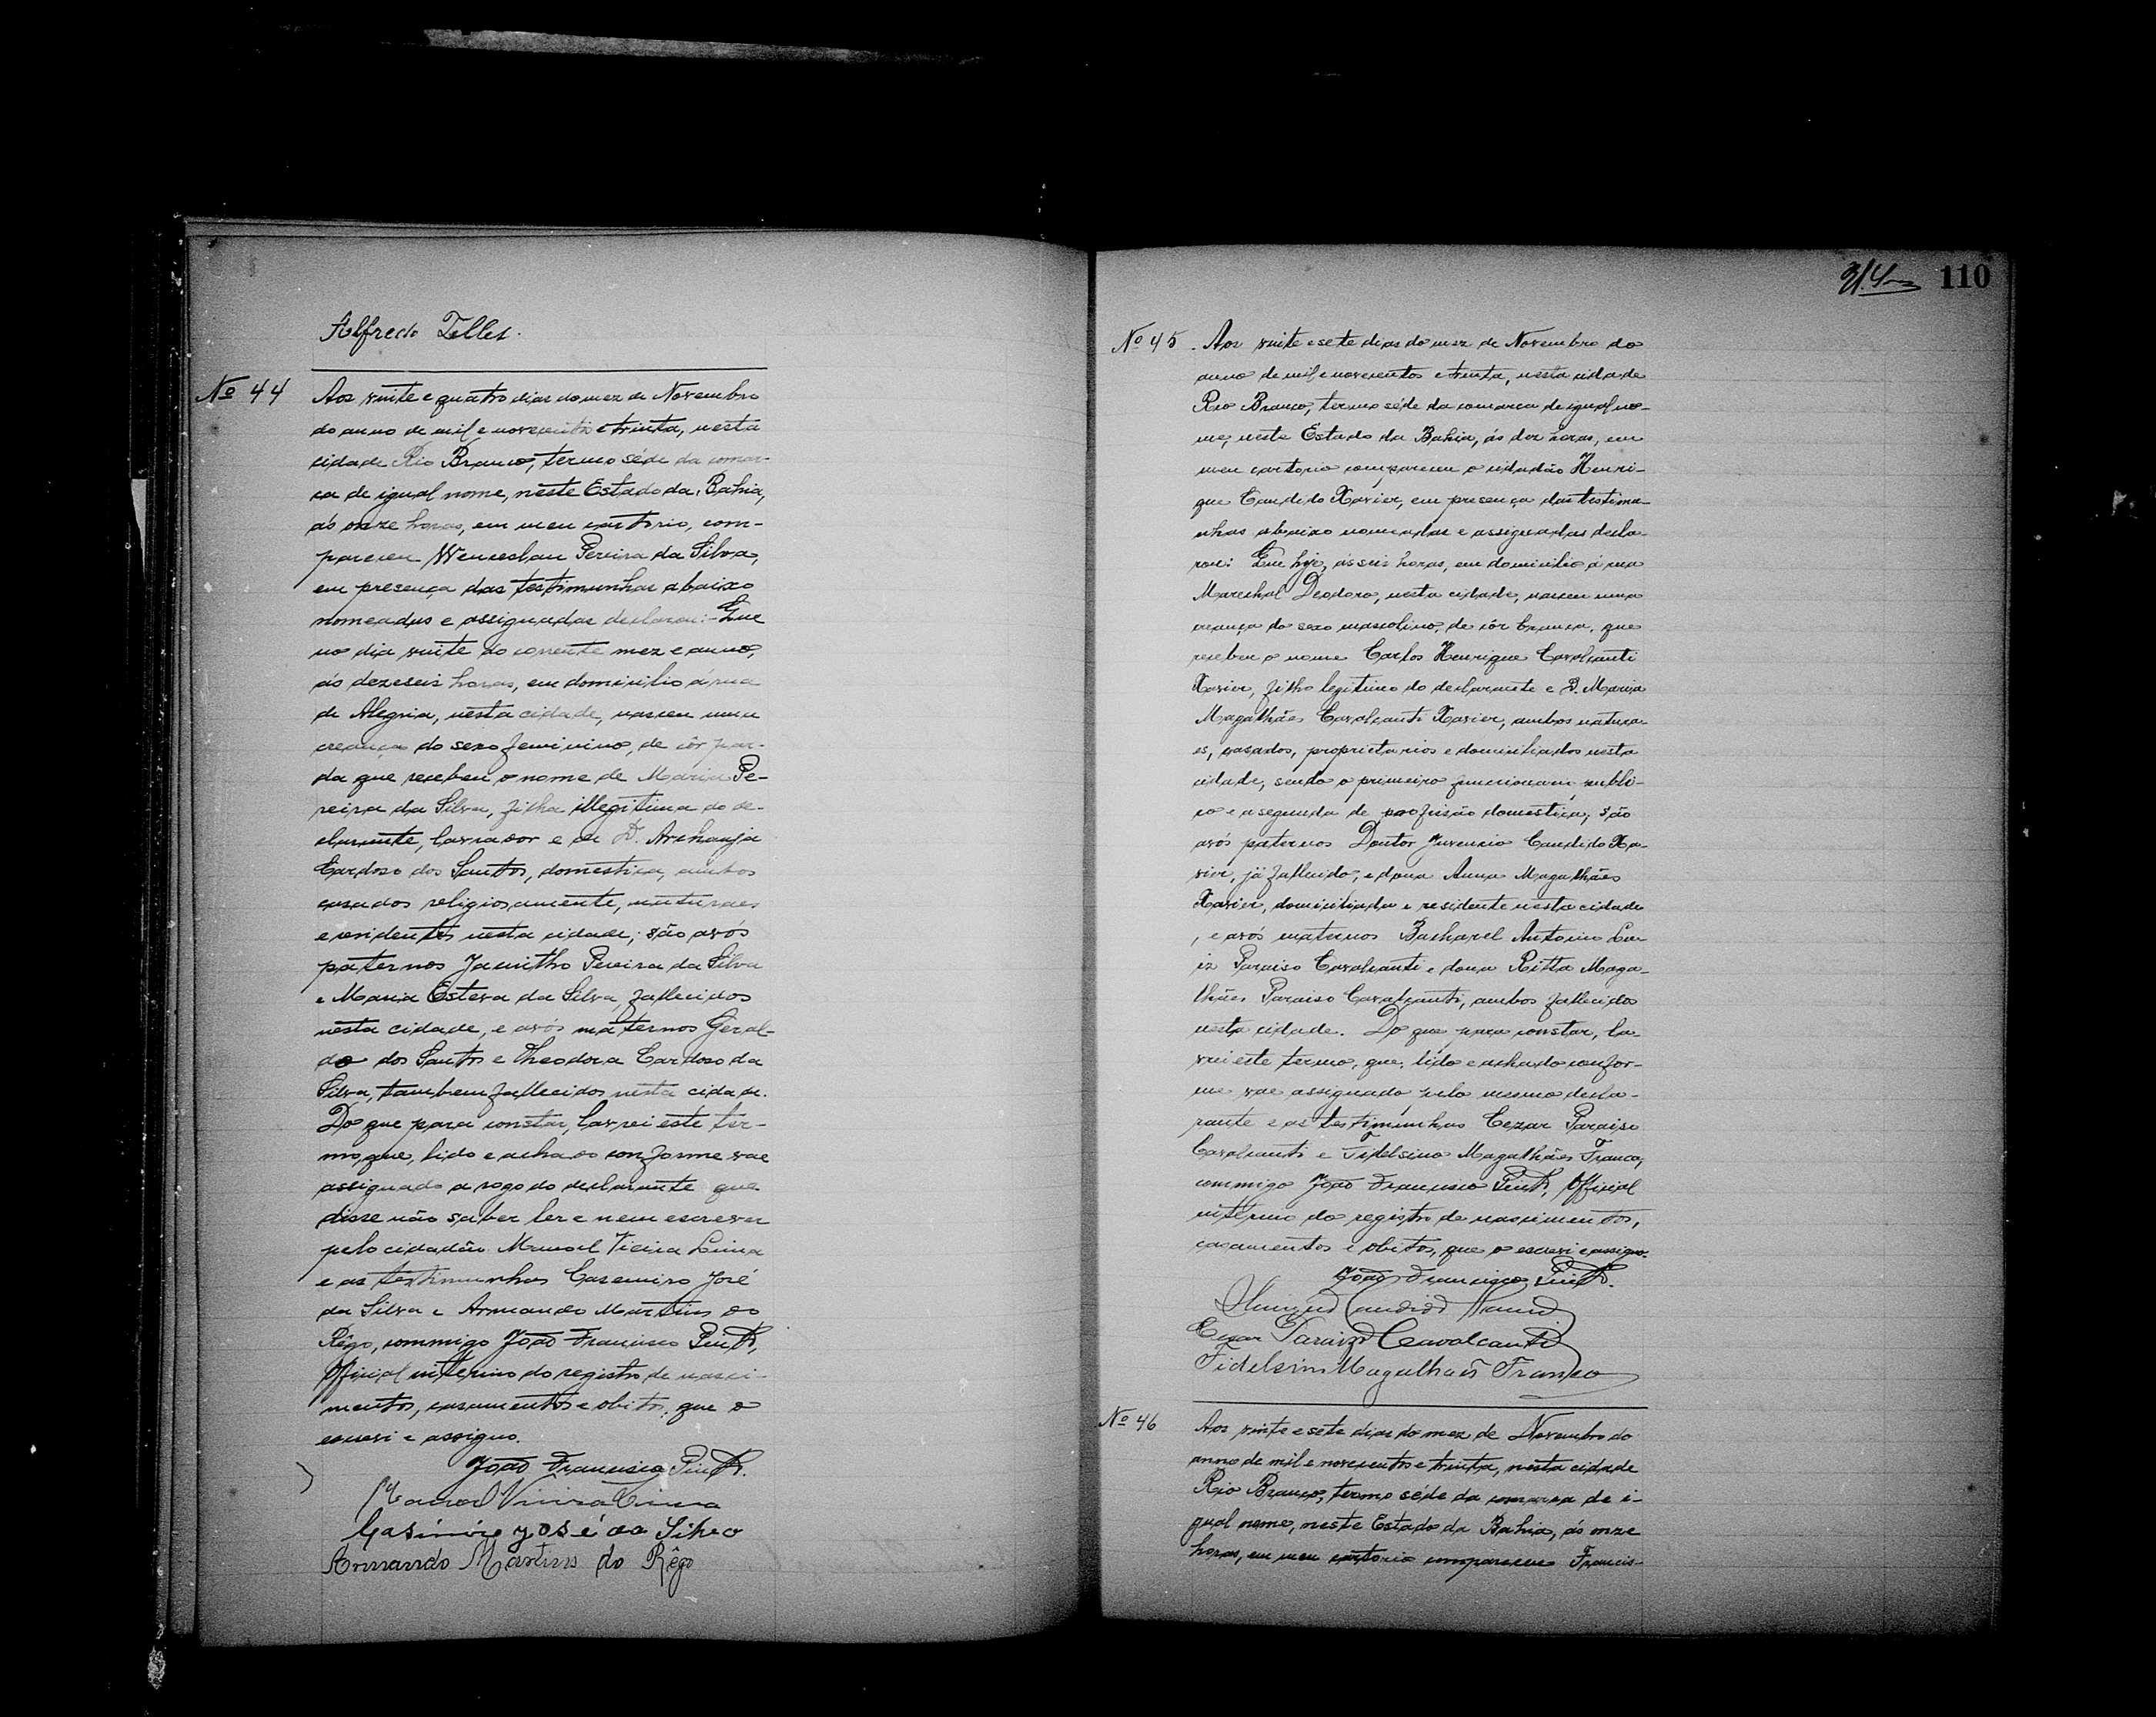 Alfredo Telles.
Nº 44
Aos vinte e quatro dias do mez de Novembro
do anno de mil e novecentos e trinta, nesta
cidade Rio Branco, termo séde da comar-
ca de igual nome, neste Estado da Bahia,
ás onze horas, em meu cartorio, com-
pareceu Wenceslau Pereira da Silva,
em presença das testimunhas abaixo
nomeadas e assignadas declarou:- Que
no dia vinte do corrente mez e anno,
ás dezeseis horas, em domicilio á rua
de Alegria, nesta cidade, nasceu uma
creança do sexo feminino, de côr par-
da que recebeu o nome de Maria Pe-
reira da Silva, filha illegitima do de-
clarante, lavrador e de D. Archanja
Cardoso dos Santos, domestica, ambos
casados religiosamente, naturaes
e residentes nesta cidade; são avós
paternos Jacintho Pereira da Silva
e Maria Esteva da Silva, fallecidos
nesta cidade, e avós maternos Geral-
do dos Santos e Theodora Cardoso da
Silva, tambem fallecidos nesta cidade.
Do que para constar, lavrei este ter-
mo, que, lido e achado conforme vae
assignado a rogo do declarante que
disse não saber ler e nem escrever
pelo cidadão Manoel Vieira Lima
e as testimunhas Casemiro José
da Silva e Armando Martins do
Rêgo, commigo João Francisco Pinto,
Official interino do registro de nasci-
mentos, casamentos e obitos, que o
escrevi e assigno.
João Francisco Pinto.
Manoel Vieira Lima
Casimiro José da Silva
Armando Martins do Rêgo
110
Nº 45. Aos vinte e sete dias do mez de Novembro do
anno de mil e novecentos e trinta, nesta cidade
Rio Branco, termo séde da comarca de igual no-
me, neste Estado da Bahia, ás dez horas, em
meu cartorio compareceu o cidadão Henri-
que Candido Xavier, em presença das testimu-
nhas abaixo nomeadas e assignadas decla-
rou: Que hoje, ás seis horas, em domicilio á rua
Marechal Deodoro, nesta cidade, nasceu uma
creança do sexo mascolino, de côr branca, que
recebeu o nome Carlos Henrique Cavalcanti
Xavier, filho legitimo do declarante e D. Maria
Magalhães Cavalcanti Xavier, ambos natura-
es, casados, proprietarios e domiciliados nesta
cidade, sendo o primeiro funcionario publi-
co e a segunda de profissão domestica; são
avós paternos Doutor Juvencio Candido Xa-
vier, já fallecido, e dona Anna Magalhães
Xavier, domiciliada e residente nesta cidade
, e avós maternos Bacharel Antonio Lu-
iz Paraiso Cavalcanti e dona Ritta Maga-
lhães Paraiso Cavalcanti, ambos fallecidos
nesta cidade. Do que para constar, la-
vrei este termo, que, lido e achado confor-
me vae assignado pelo mesmo decla-
rante e as testimunhas Cezar Paraiso
Cavalcanti e Fidelsino Magalhães Franca,
commigo João Francisco Pinto, Official
interino do registro de nascimentos,
casamentos e obitos, que o escrevi e assigno.
João Francisco Pinto.
Henrique Candido Xavier
Cezar Paraizo Cavalcanti
Fidelsino Magalhães Franca
Nº 46
Aos vinte e sete dias do mez de Novembro do
anno de mil e novecentos e trinta, nesta cidade
Rio Branco, termo séde da comarca de i-
gual nome, neste Estado da Bahia, ás onze
horas, em meu cartorio compareceu Francis-